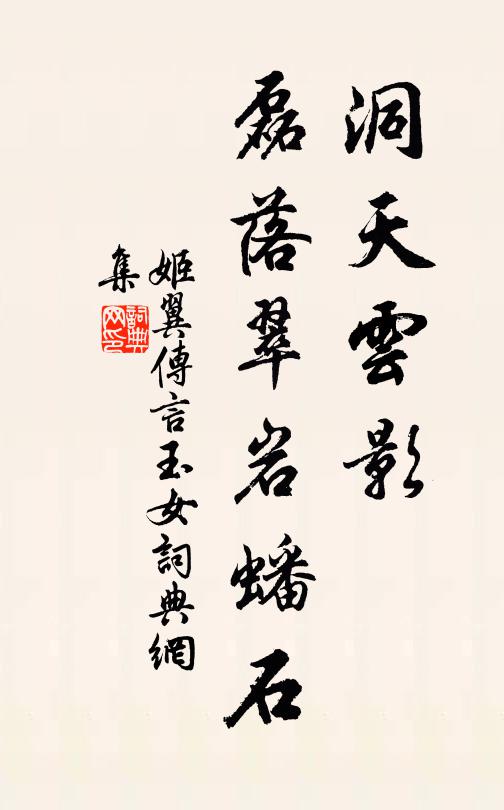 洞天雲影
磊落翠岩蟠石
姬翼傳言玉女詞典網
集
詞典
网印